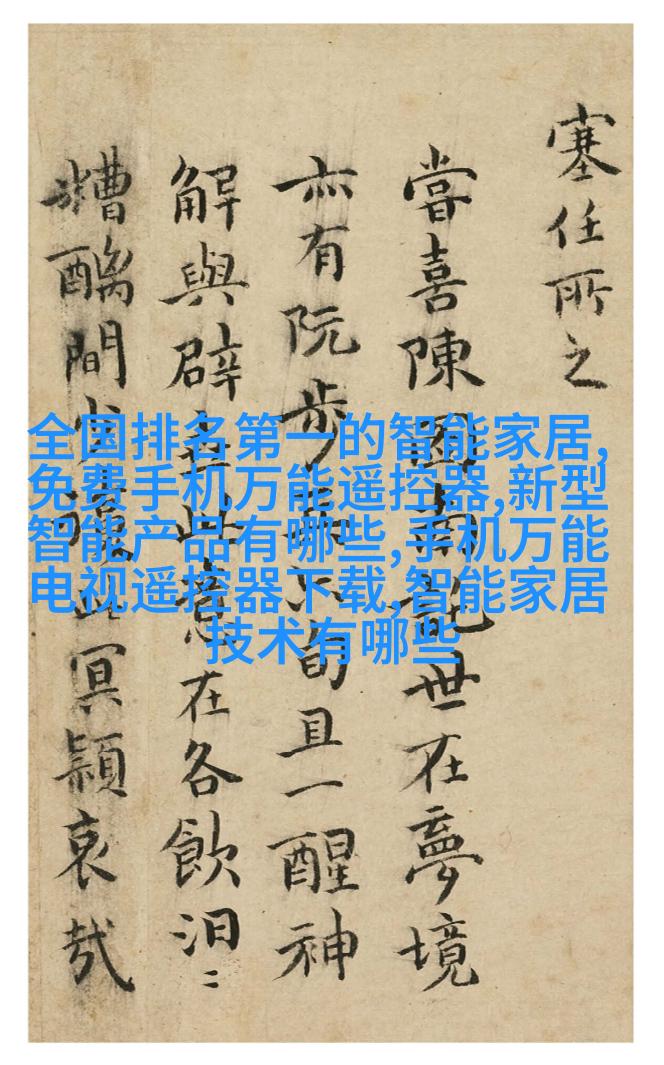 塞任所之
嘗喜陳圖南記世在夢境
亦有阮步旬且一醒神
解與辟此意在各飲汩〻
糟醨間此冥哀哉
全国排名第一的智能家居,
免费手机万能遥控器,新型
智能产品有哪些,手机万能
电视遥控器下载,智能家居
技术有哪些